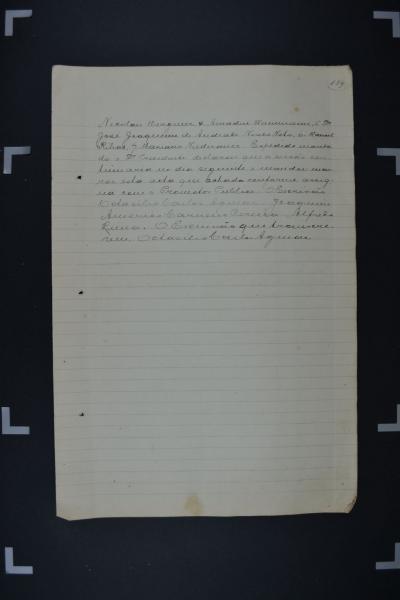 Nicolau 4 Amadeu 5 Dr
José Joaquim de Andrade Neves Neto, 6 Manoel
Ribas, 7 Mariano Expedido manda
do o Dr Presidente declarou que a sessão con
tinuaria no dia seguinte e mandou
esta acta que estando conforme assig
na com o Promotor Publico O Escrivão
Octacilio Carlos Aguiar. Joaquim
Americo Carneiro Pereira. Alfredo
O Escrivão que transcre
Octacilio Carlos Aguiar